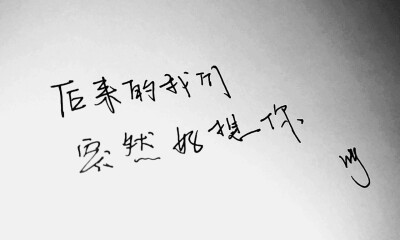 后来的我们
突然好想你、